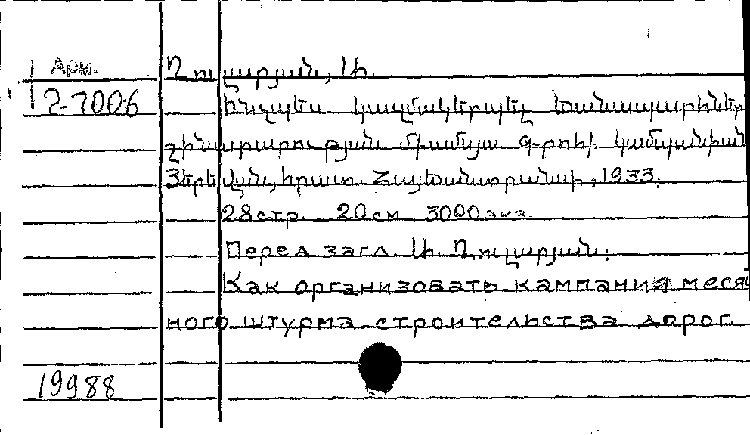 Арм.
2-7006
Ղուլարյան, Ս.
Ինչպես կազմակերպել ճանապարհներ
շինարարության միամսյա գրոհի կամպանիան
Յերեվան, հրատ. 1933.
28 стр. 20 см 3000 экз.
Перед загл. Ս. Ղուլարյան.
Как организовать кампания месяч
ного штурма строительства дорог
19988